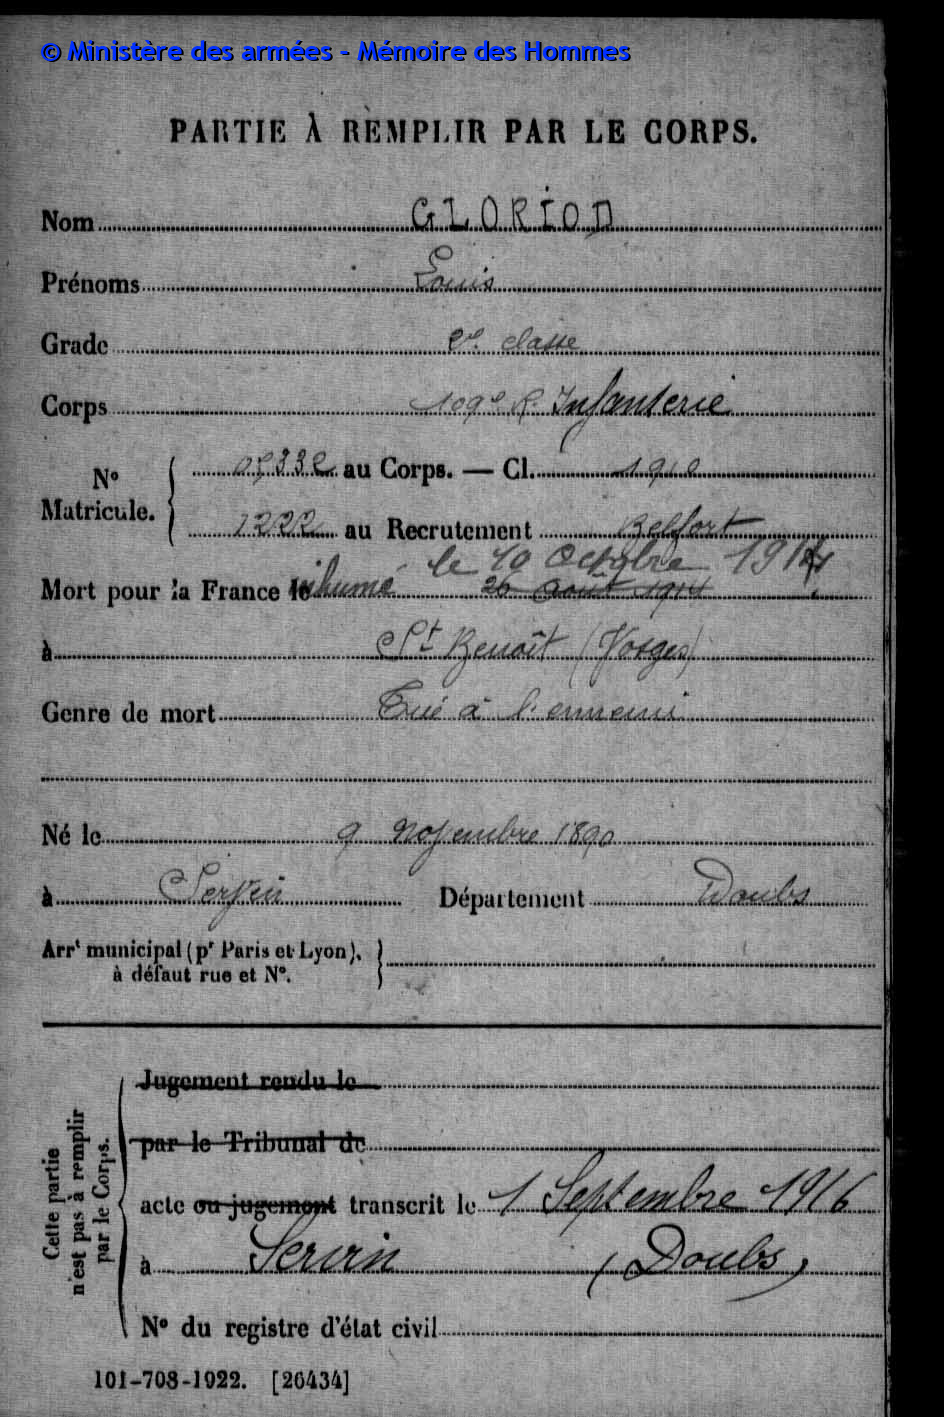 © Ministère des armées - Mémoire des Hommes
PARTIE À REMPLIR PAR LE CORPS.
Nom GLORIOD
Prénoms Louis
Grade 2e. classe
Corps 109e R. Infanterie
N° Matricule. { 05332 au Corps. — Cl. 1910
1222 au Recrutement Belfort
le 10 Octobre 1914
Mort pour la France le inhumé 26 Août 1914
à St Benoît (Vosges)
Genre de mort Tué à l'ennemi
Né le 9 Novembre 1890
à Servin Département Doubs
Arrt municipal (pr Paris et Lyon),
à défaut rue et N°.
Cette partie
n'est pas à remplir
par le Corps.
Jugement rendu le
par le Tribunal de
acte ou jugement transcrit le 1 Septembre 1916
à Servin (Doubs)
N° du registre d'état civil
101-708-1922. [26434]